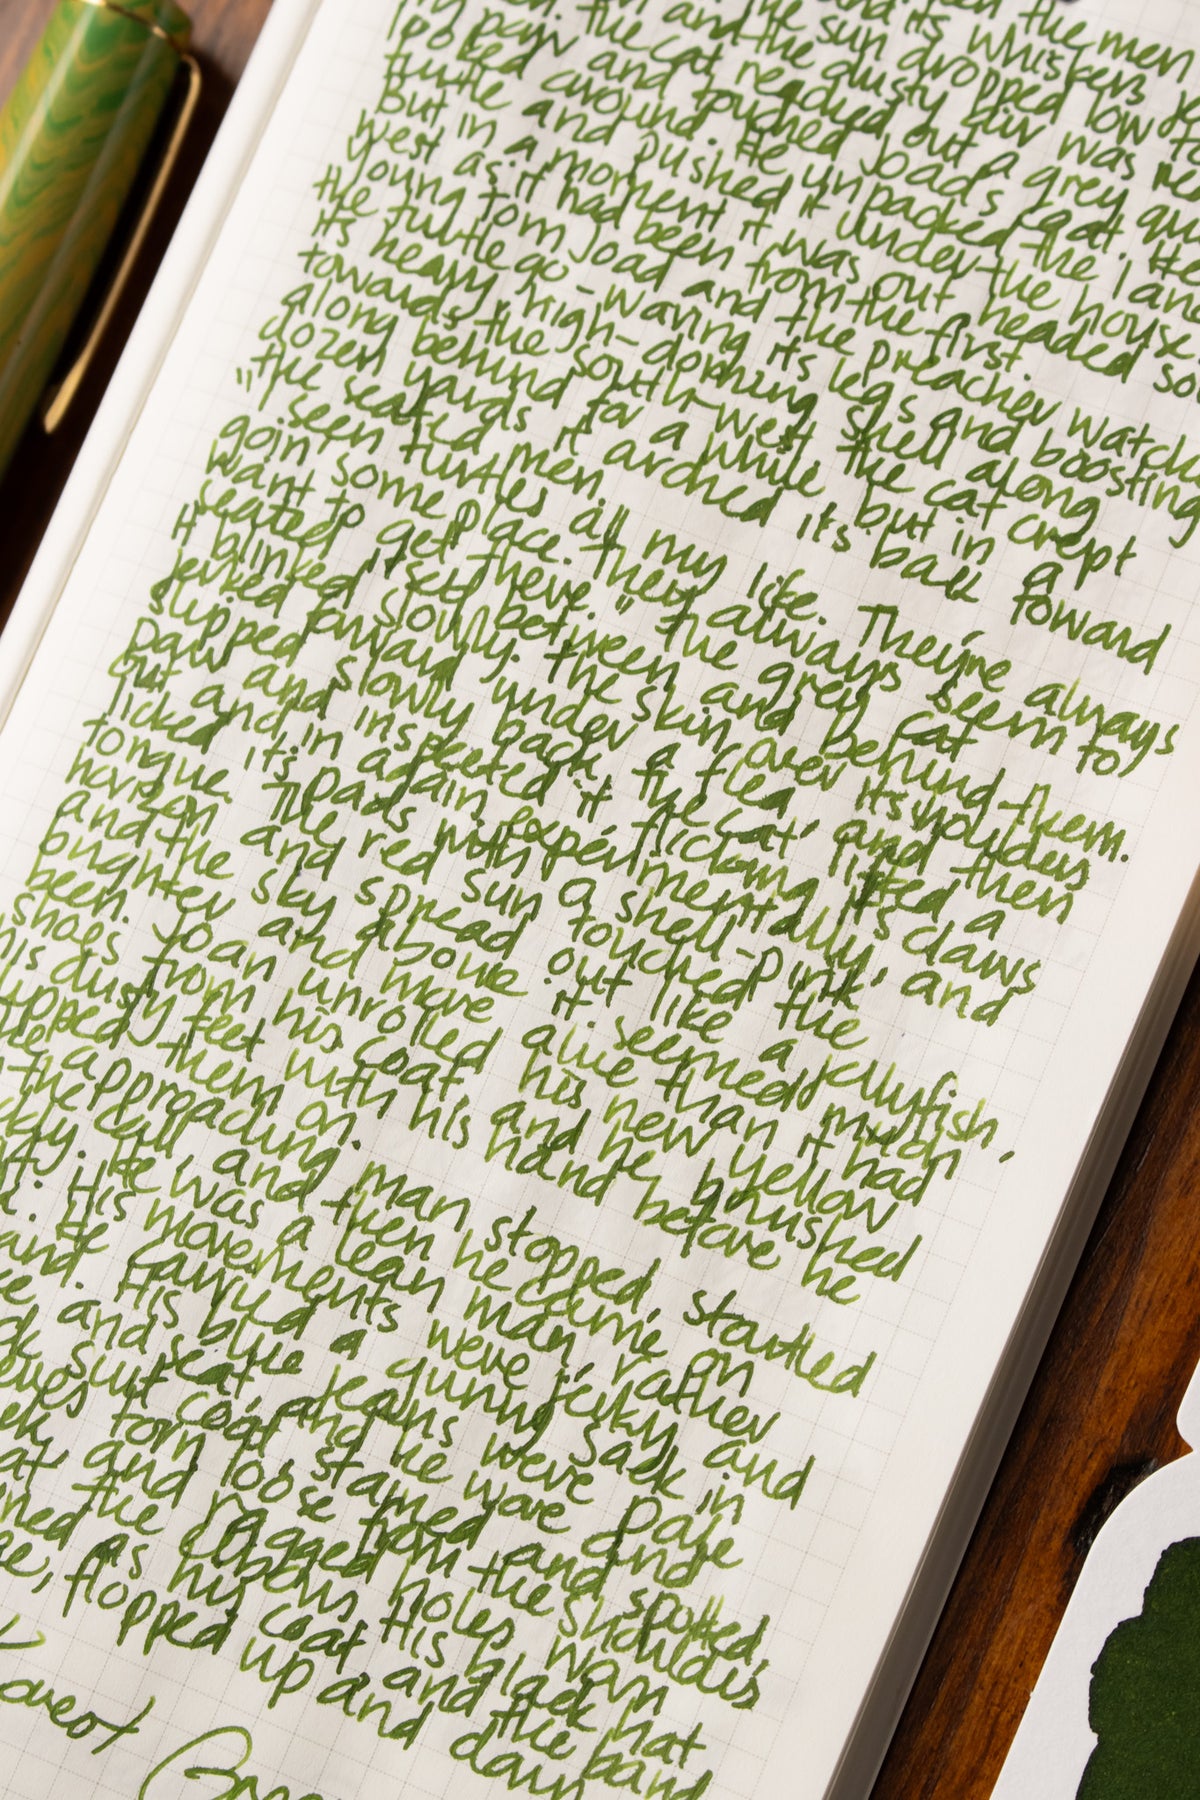 the men
and its whiskers
the sun dropped low
and the dusty air was
the cat reached out a grey
paw and touched Joad's coat. He
poked around. He unpacked the land
turtle and pushed it under the house.
But in a moment it was out headed
west as it had been from the first.
Young Tom Joad and the preacher watched
the turtle go - waving its legs and boosting
its heavy, high-doming shell along
towards the south-west the cat crept
along behind for a while, but in a
dozen yards it arched its back toward
the seated men.
"I seen turtles all my life. They're always
goin some place. They always seem to
want to get there." the grey cat
seated itself between and behind them.
It blinked slowly. the skin over its shoulders
jerked forward under a flea, and then
slipped slowly back. the cat lifted a
paw and inspected it flicking its claws
out and in again experimentally, and
licked its pads with a shell-pink
tongue. The red sun touched the
horizon and spread out like a jellyfish,
and the sky above it seemed much
brighter and more alive than it had
been. Joan unrolled his new yellow
shoes from his coat, and he brushed
his dusty feet with his hand before he
slipped them on.
the approaching man stopped, startled
the call, and then he came on
He was a lean man, rather
His movements were jerky and
He carried a gunny sack in
His blue jeans were pale
and seat, and he wore and
suit coat stained and spotted,
torn loose from the shoulders
and ragged holes worn
at the elbows. His black hat
as his coat and the band
flopped up and down